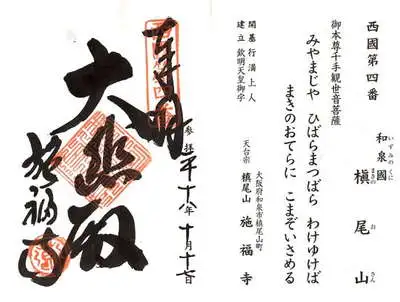 西國第四番
和泉國 いずみのくに
槇尾山 まきのおさん
御本尊千手観世音菩薩
みやまじや ひばらまつばら わけゆけば
まきのおてらに こまぞいさめる
開基行満上人
建立 欽明天皇御宇
大阪府和泉市槙尾山町
天台宗 槙尾山 施福寺
参拝 平十八年 十月十七日
奉拝
大悲殿
施福寺